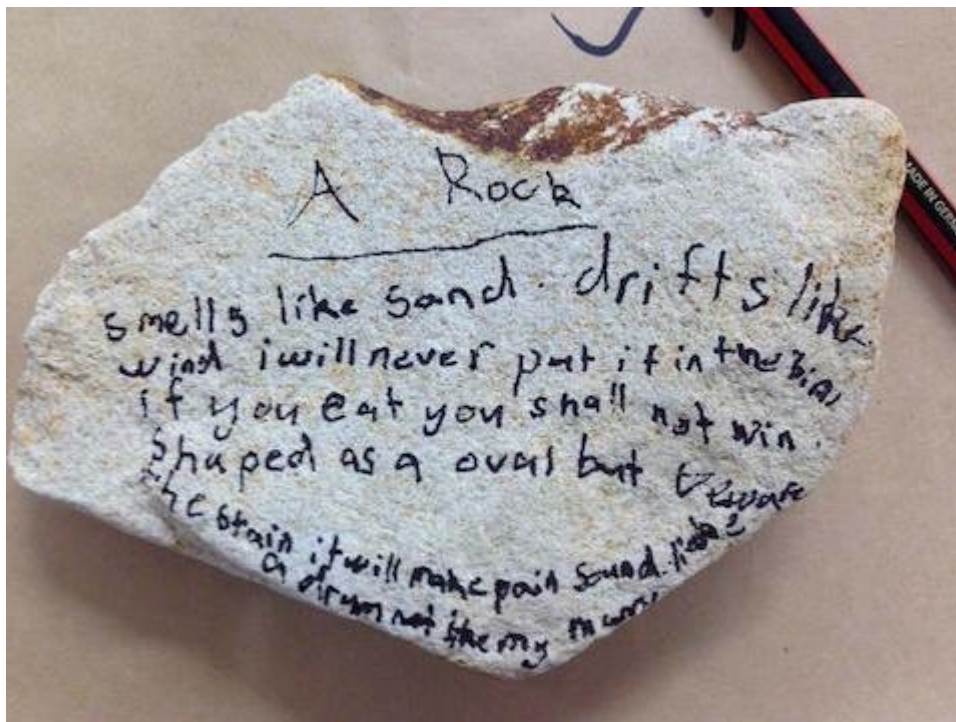 A Rock
smells like sand. drifts like
wind i will never put it in the bin,
if you eat you shall not win.
shaped as a oval but beware
the stain it will make pain sound like
a drum not like my mum.
MADE IN GER